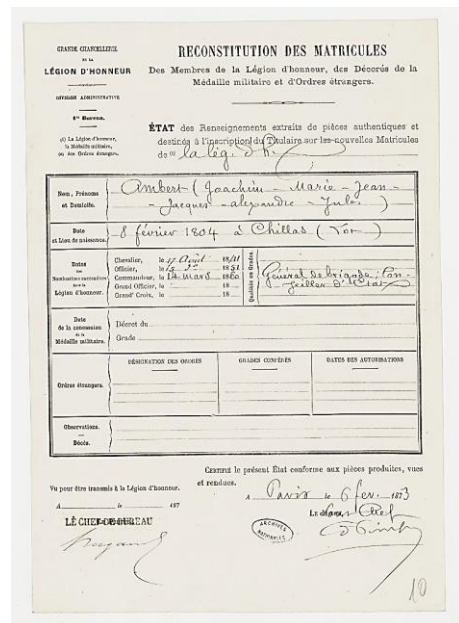 GRANDE CHANCELLERIE
DE LA
LÉGION D'HONNEUR
DIVISION ADMINISTRATIVE
1er Bureau.
(1) La Légion d'honneur,
la Médaille militaire,
ou des Ordres étrangers.
RECONSTITUTION DES MATRICULES
Des Membres de la Légion d'honneur, des Décorés de la
Médaille militaire et d'Ordres étrangers.
ÉTAT des Renseignements extraits de pièces authentiques et
destinés à l'inscription du Titulaire sur les nouvelles Matricules
de (1) la Lég. d'h.
Nom, Prénoms
et Domicile.
Ambert (Joachim - Marie - Jean -
- Jacques - alexandre - Jules)
Date
et Lieu de naissance.
8 février 1804 à Chillas (Lot)
Dates
des
Nominations successives
dans la
Légion d'honneur.
Chevalier, le 17 Août 18
Officier, le 1851
Commandeur, le 14 mars 1860
Grand Officier, le 18
Grand' Croix, le 18
Qualités ou Grades.
Général de brigade, Con-
seiller d'Etat
Date
de la concession
de la
Médaille militaire.
Décret du
Grade
Ordres étrangers.
DÉSIGNATION DES ORDRES
GRADES CONFÉRÉS
DATES DES AUTORISATIONS
Observations.
Décès.
CERTIFIÉ le présent État conforme aux pièces produites, vues
et rendues.
Vu pour être transmis à la Légion d'honneur.
A Paris le 6 fév. 1873
A le 187
LE CHEF DE BUREAU
ARCHIVES
NATIONALES
10